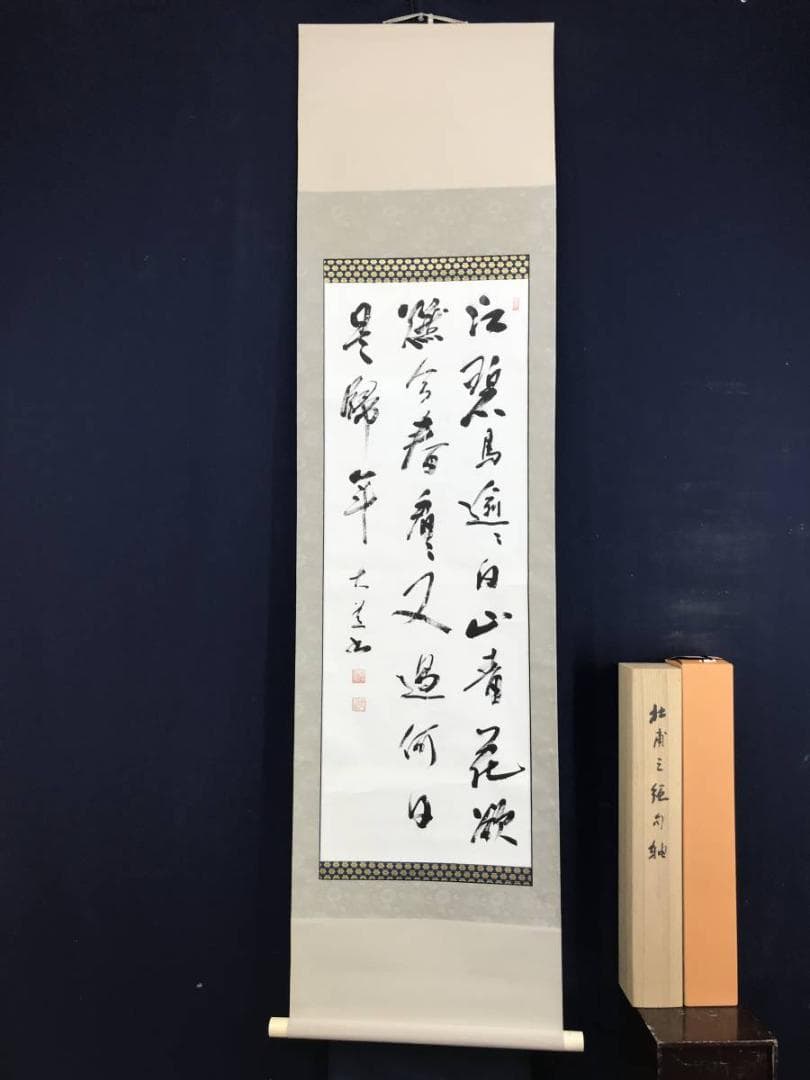 江碧鳥逾〻白山青花欲
燃今春看〻又過何日
是歸年
杜甫之絶句軸